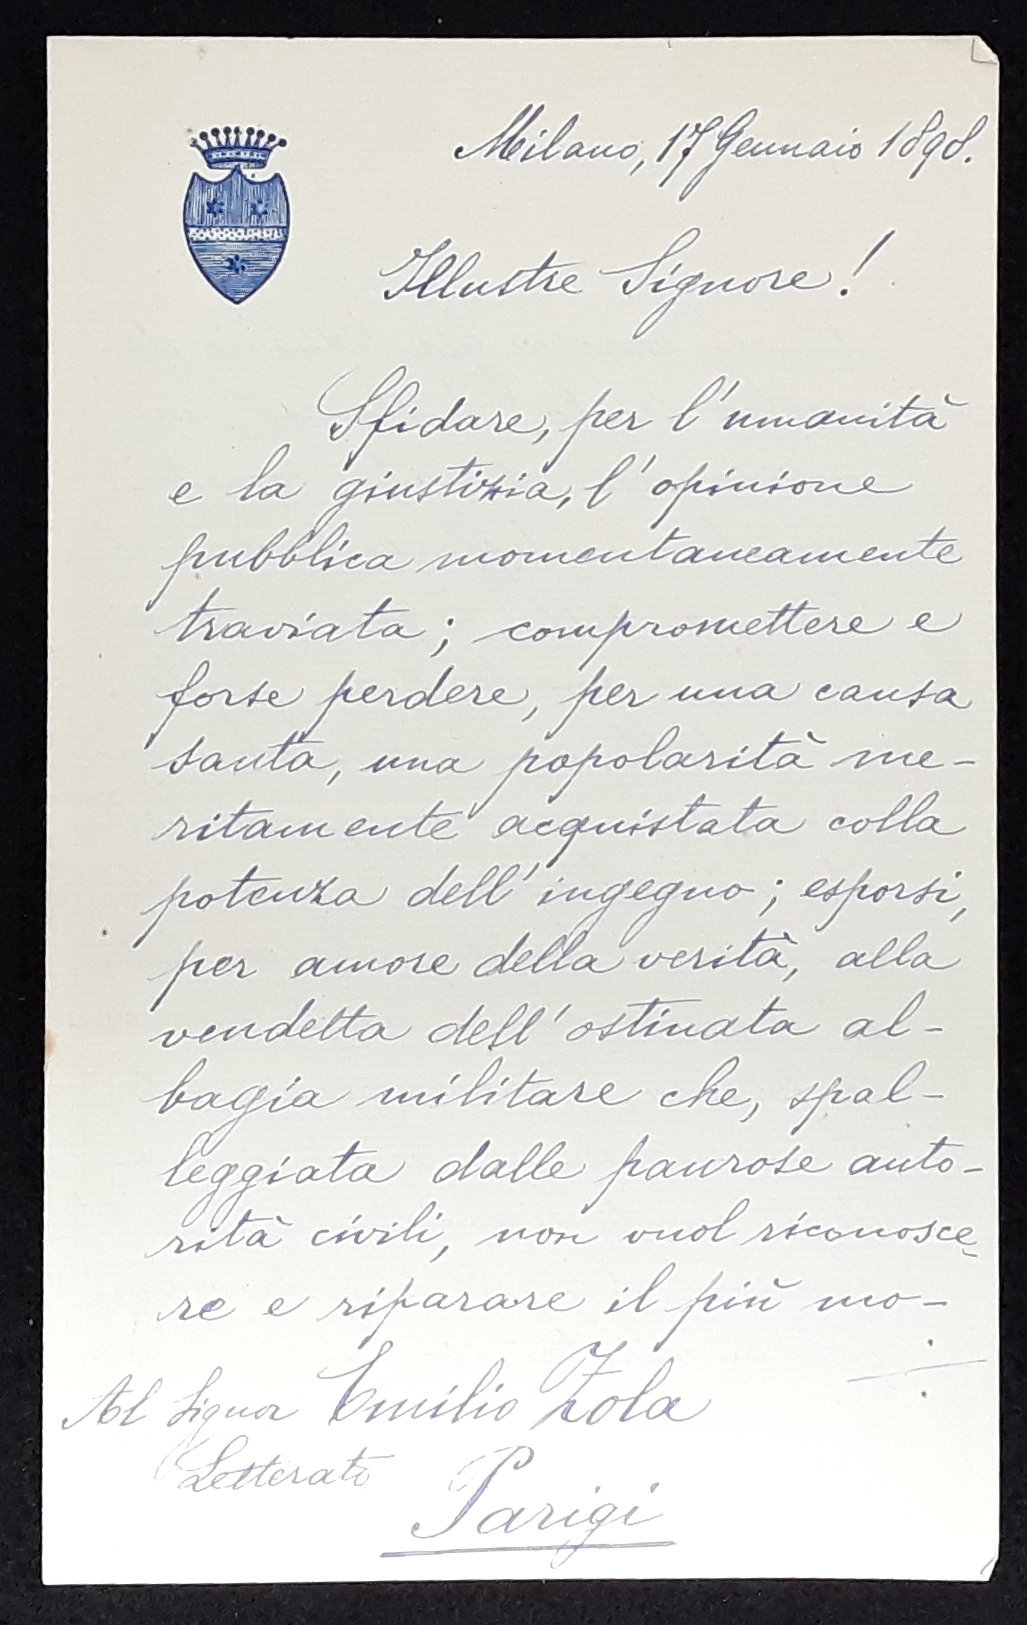 Milano, 17 Gennaio 1898.
Illustre Signore!
Sfidare, per l'umanità
e la giustizia, l'opinione
pubblica momentaneamente
traviata; compromettere e
forse perdere, per una causa
santa, una popolarità me-
ritamente acquistata colla
potenza dell'ingegno; esporsi,
per amore della verità, alla
vendetta dell'ostinata al-
bagia militare che, spal-
leggiata dalle paurose auto-
rità civili, non vuol riconosce-
re e riparare il più mo-
Al Signor Emilio Zola
Letterato
Parigi